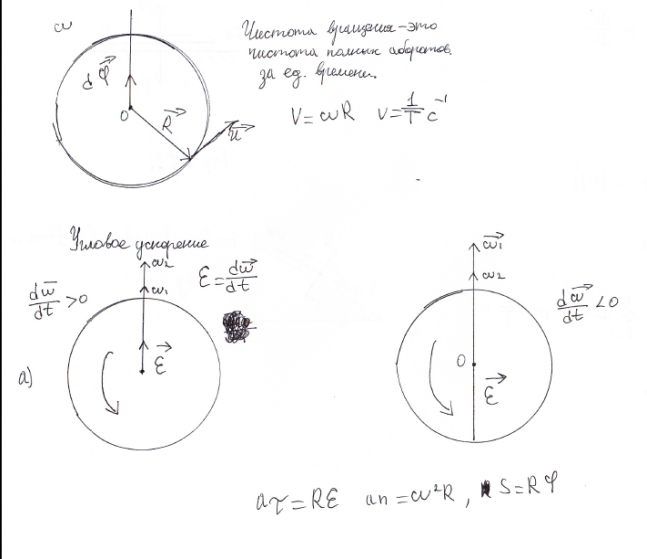 ω
Частота вращения – это
частота полных оборотов
за ед. времени.
dφ⃗
O
R⃗
u⃗
V = ωR ν = 1/T c⁻¹
Угловое ускорение
dω⃗/dt > 0
ω2
ω1
ε = dω⃗/dt
ε⃗
а)
ω⃗1
ω2
dω⃗/dt < 0
O
ε⃗
aτ = Rε an = ω²R, S = Rφ